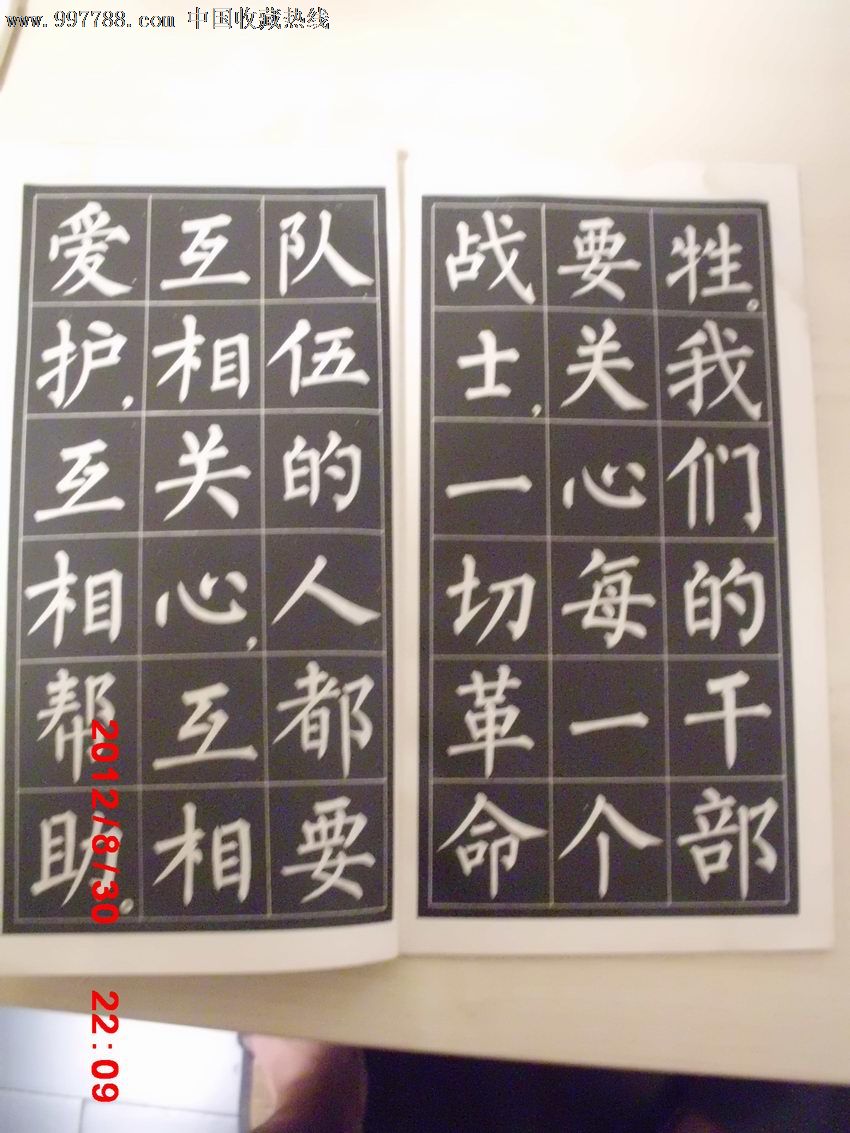 www.997788.com 中国收藏热线
牲。我们的干部
要关心每一个
战士，一切革命
队伍的人都要
互相关心，互相
爱护，互相帮助。
2012/8/30 22:09